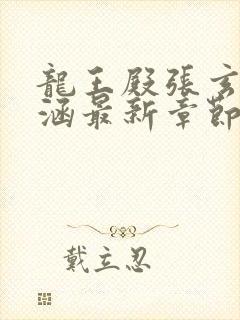 龍王殿張玄
涵最新章節
戴立忍